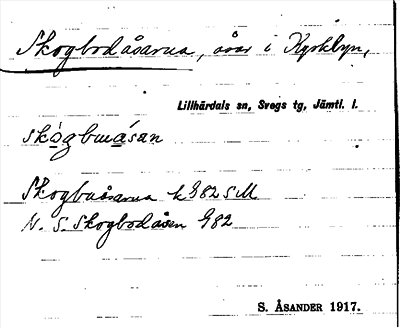 Skogbodåsarna, åsar i Kyrkbyn,
Lillhärdals sn, Svegs tg, Jämtl. l.
skògbuásan
Skogbuåsarna k 982 S M
N. S. Skogbodåsen 982
S. ÅSANDER 1917.